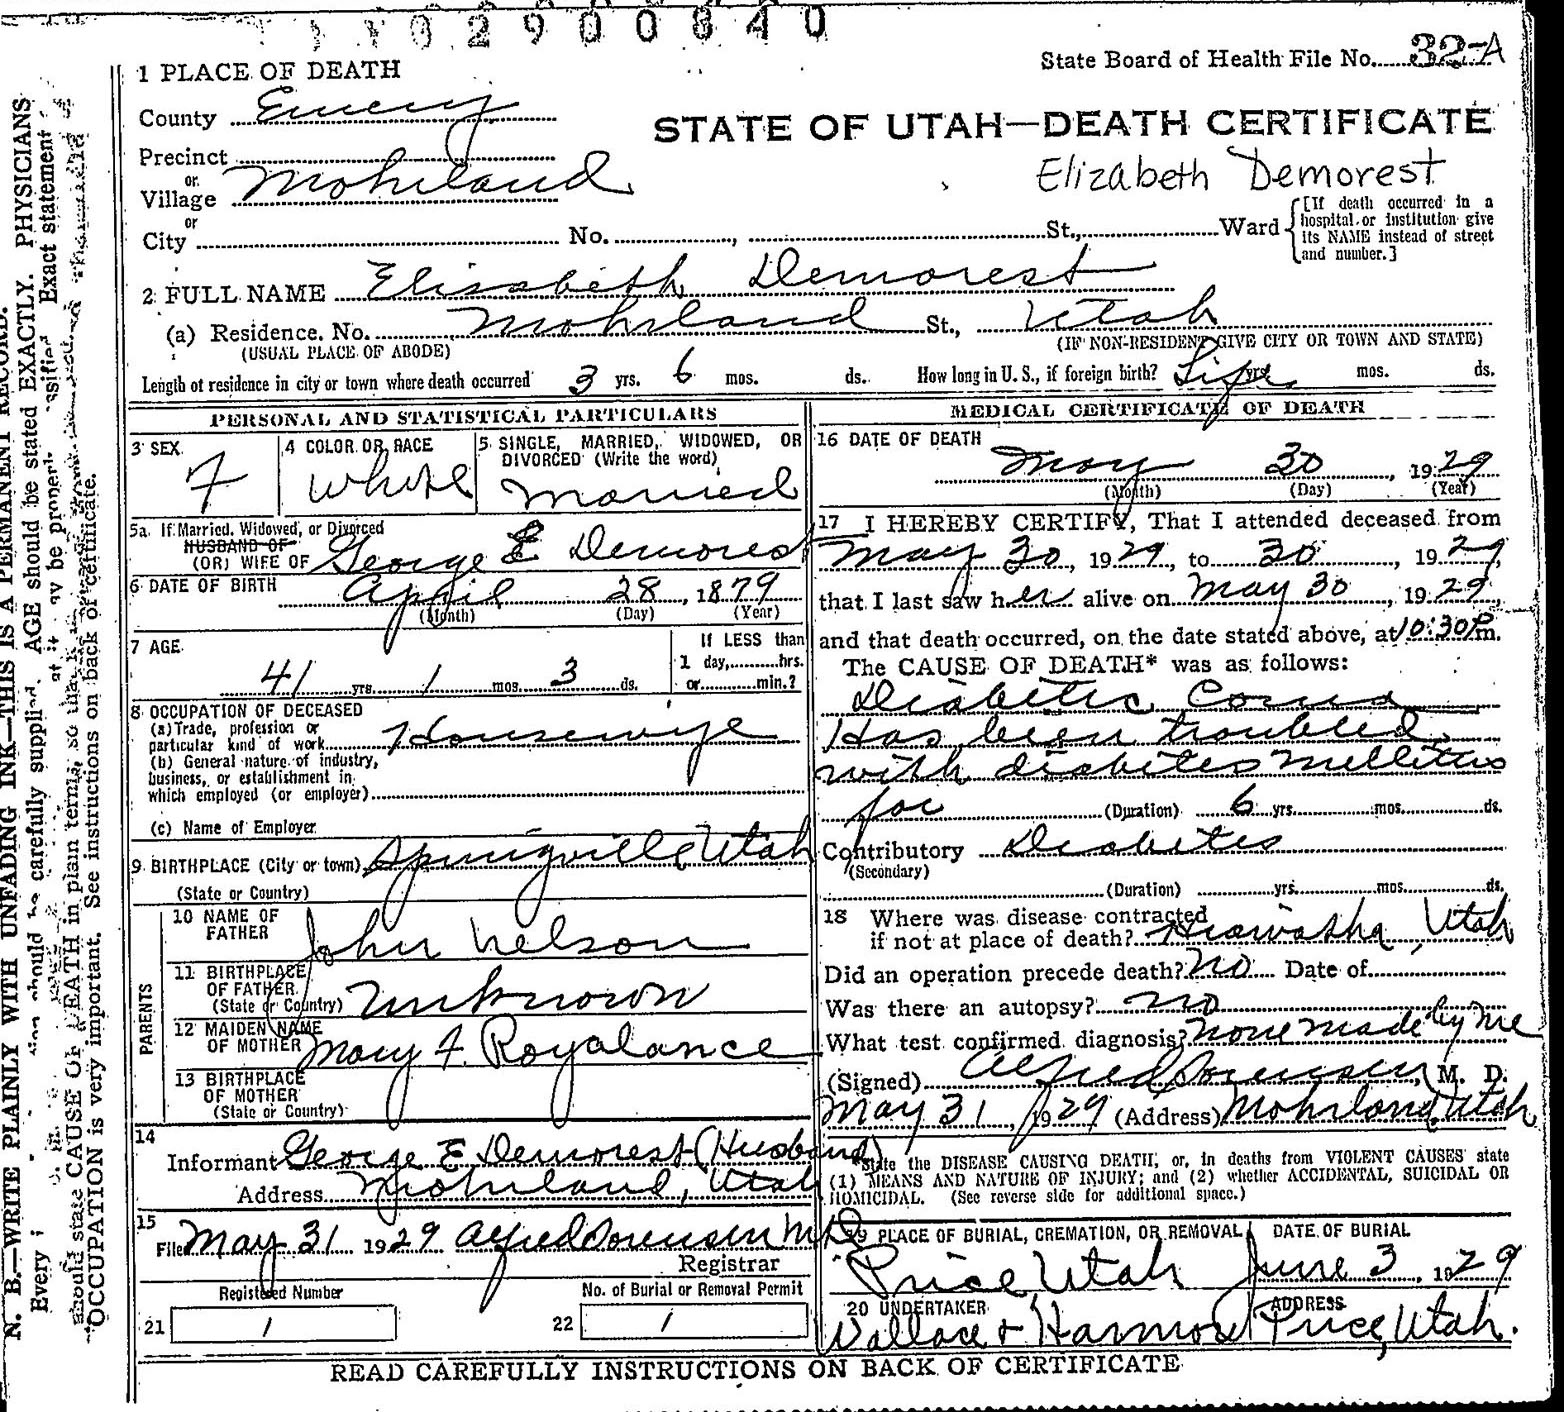 02900840
State Board of Health File No. 32-A
1 PLACE OF DEATH
County Emery
STATE OF UTAH—DEATH CERTIFICATE
Precinct
or
Village Mohrland
Elizabeth Demorest
or
City No. , St., Ward
[If death occurred in a
hospital or institution give
its NAME instead of street
and number.]
2 FULL NAME Elisabeth Demorest
(a) Residence. No. Mohrland St., Utah
(USUAL PLACE OF ABODE) (IF NON-RESIDENT GIVE CITY OR TOWN AND STATE)
Length of residence in city or town where death occurred 3 yrs. 6 mos. ds. How long in U. S., if foreign birth? Life yrs. mos. ds.
PERSONAL AND STATISTICAL PARTICULARS
3 SEX 4 COLOR OR RACE 5 SINGLE, MARRIED, WIDOWED, OR
DIVORCED (Write the word)
F White Married
5a. If Married, Widowed, or Divorced
HUSBAND OF
(OR) WIFE OF George E Demorest
6 DATE OF BIRTH April 28, 1879
(Month) (Day) (Year)
7 AGE If LESS than
1 day, hrs.
41 yrs. 1 mos. 3 ds. or min.?
8 OCCUPATION OF DECEASED
(a) Trade, profession or
particular kind of work Housewife
(b) General nature of industry,
business, or establishment in
which employed (or employer)
(c) Name of Employer
9 BIRTHPLACE (City or town) Springville Utah
(State or Country)
PARENTS
10 NAME OF
FATHER John Nelson
11 BIRTHPLACE
OF FATHER
(State or Country) Unknown
12 MAIDEN NAME
OF MOTHER Mary F. Royalance
13 BIRTHPLACE
OF MOTHER
(State or Country)
14
Informant George E Demorest (Husband)
Address Mohrland, Utah
15
Filed May 31 1929 Alfred Sorensen MD
Registrar
Registered Number No. of Burial or Removal Permit
21 1 22 1
MEDICAL CERTIFICATE OF DEATH
16 DATE OF DEATH
May 30, 1929
(Month) (Day) (Year)
17 I HEREBY CERTIFY, That I attended deceased from
May 30, 1929, to 30, 1929,
that I last saw her alive on May 30, 1929,
and that death occurred, on the date stated above, at 10:30 P.m.
The CAUSE OF DEATH* was as follows:
Diabetic Coma
Has been troubled
with diabetes mellitus
for (Duration) 6 yrs. mos. ds.
Contributory Diabetes
(Secondary)
(Duration) yrs. mos. ds.
18 Where was disease contracted
if not at place of death? Hiawatha, Utah
Did an operation precede death? No Date of
Was there an autopsy? no
What test confirmed diagnosis? none made by me
(Signed) Alfred Sorensen, M. D.
May 31, 1929 (Address) Mohrland, Utah
*State the DISEASE CAUSING DEATH, or, in deaths from VIOLENT CAUSES state
(1) MEANS AND NATURE OF INJURY; and (2) whether ACCIDENTAL, SUICIDAL OR
HOMICIDAL. (See reverse side for additional space.)
19 PLACE OF BURIAL, CREMATION, OR REMOVAL DATE OF BURIAL
Price Utah June 3, 1929
20 UNDERTAKER ADDRESS
Wallace & Harmon Price, Utah.
READ CAREFULLY INSTRUCTIONS ON BACK OF CERTIFICATE
N. B.—WRITE PLAINLY WITH UNFADING INK—THIS IS A PERMANENT RECORD.
Every should be carefully supplied. AGE should be stated EXACTLY. PHYSICIANS
should state CAUSE OF DEATH in plain terms, so that it may be properly classified. Exact statement
OCCUPATION is very important. See instructions on back of certificate.